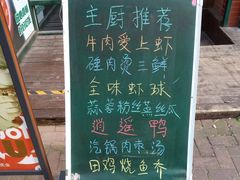 主厨推荐
牛肉愛上虾
砗肉烫三鲜
全味虾球
蒜蓉粉丝蒸丝瓜
逍遥鸭
汽锅肉枣汤
田鸡烧鱼夼